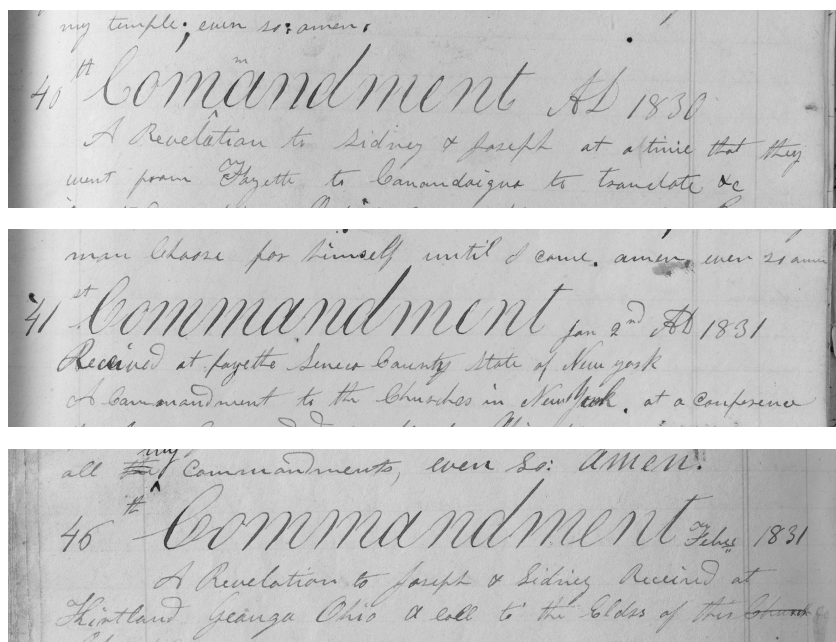 my temple; even so: amen.
40th Comandment AD 1830
A Revelation to Sidney & Joseph at a time that they
went from Fayette to Canandaigua to translate &c
man choose for himself until I come. amen. even so amen
41st Commandment Jan 2nd AD 1831
Received at fayette Seneca County State of New york
A Commandment to the Churches in New York. at a conference
all my commandments, even so: amen.
46th Commandment Feby 1831
A Revelation to Joseph & Sidney Received at
Kirtland Geauga Ohio a call to the Elders of this Church